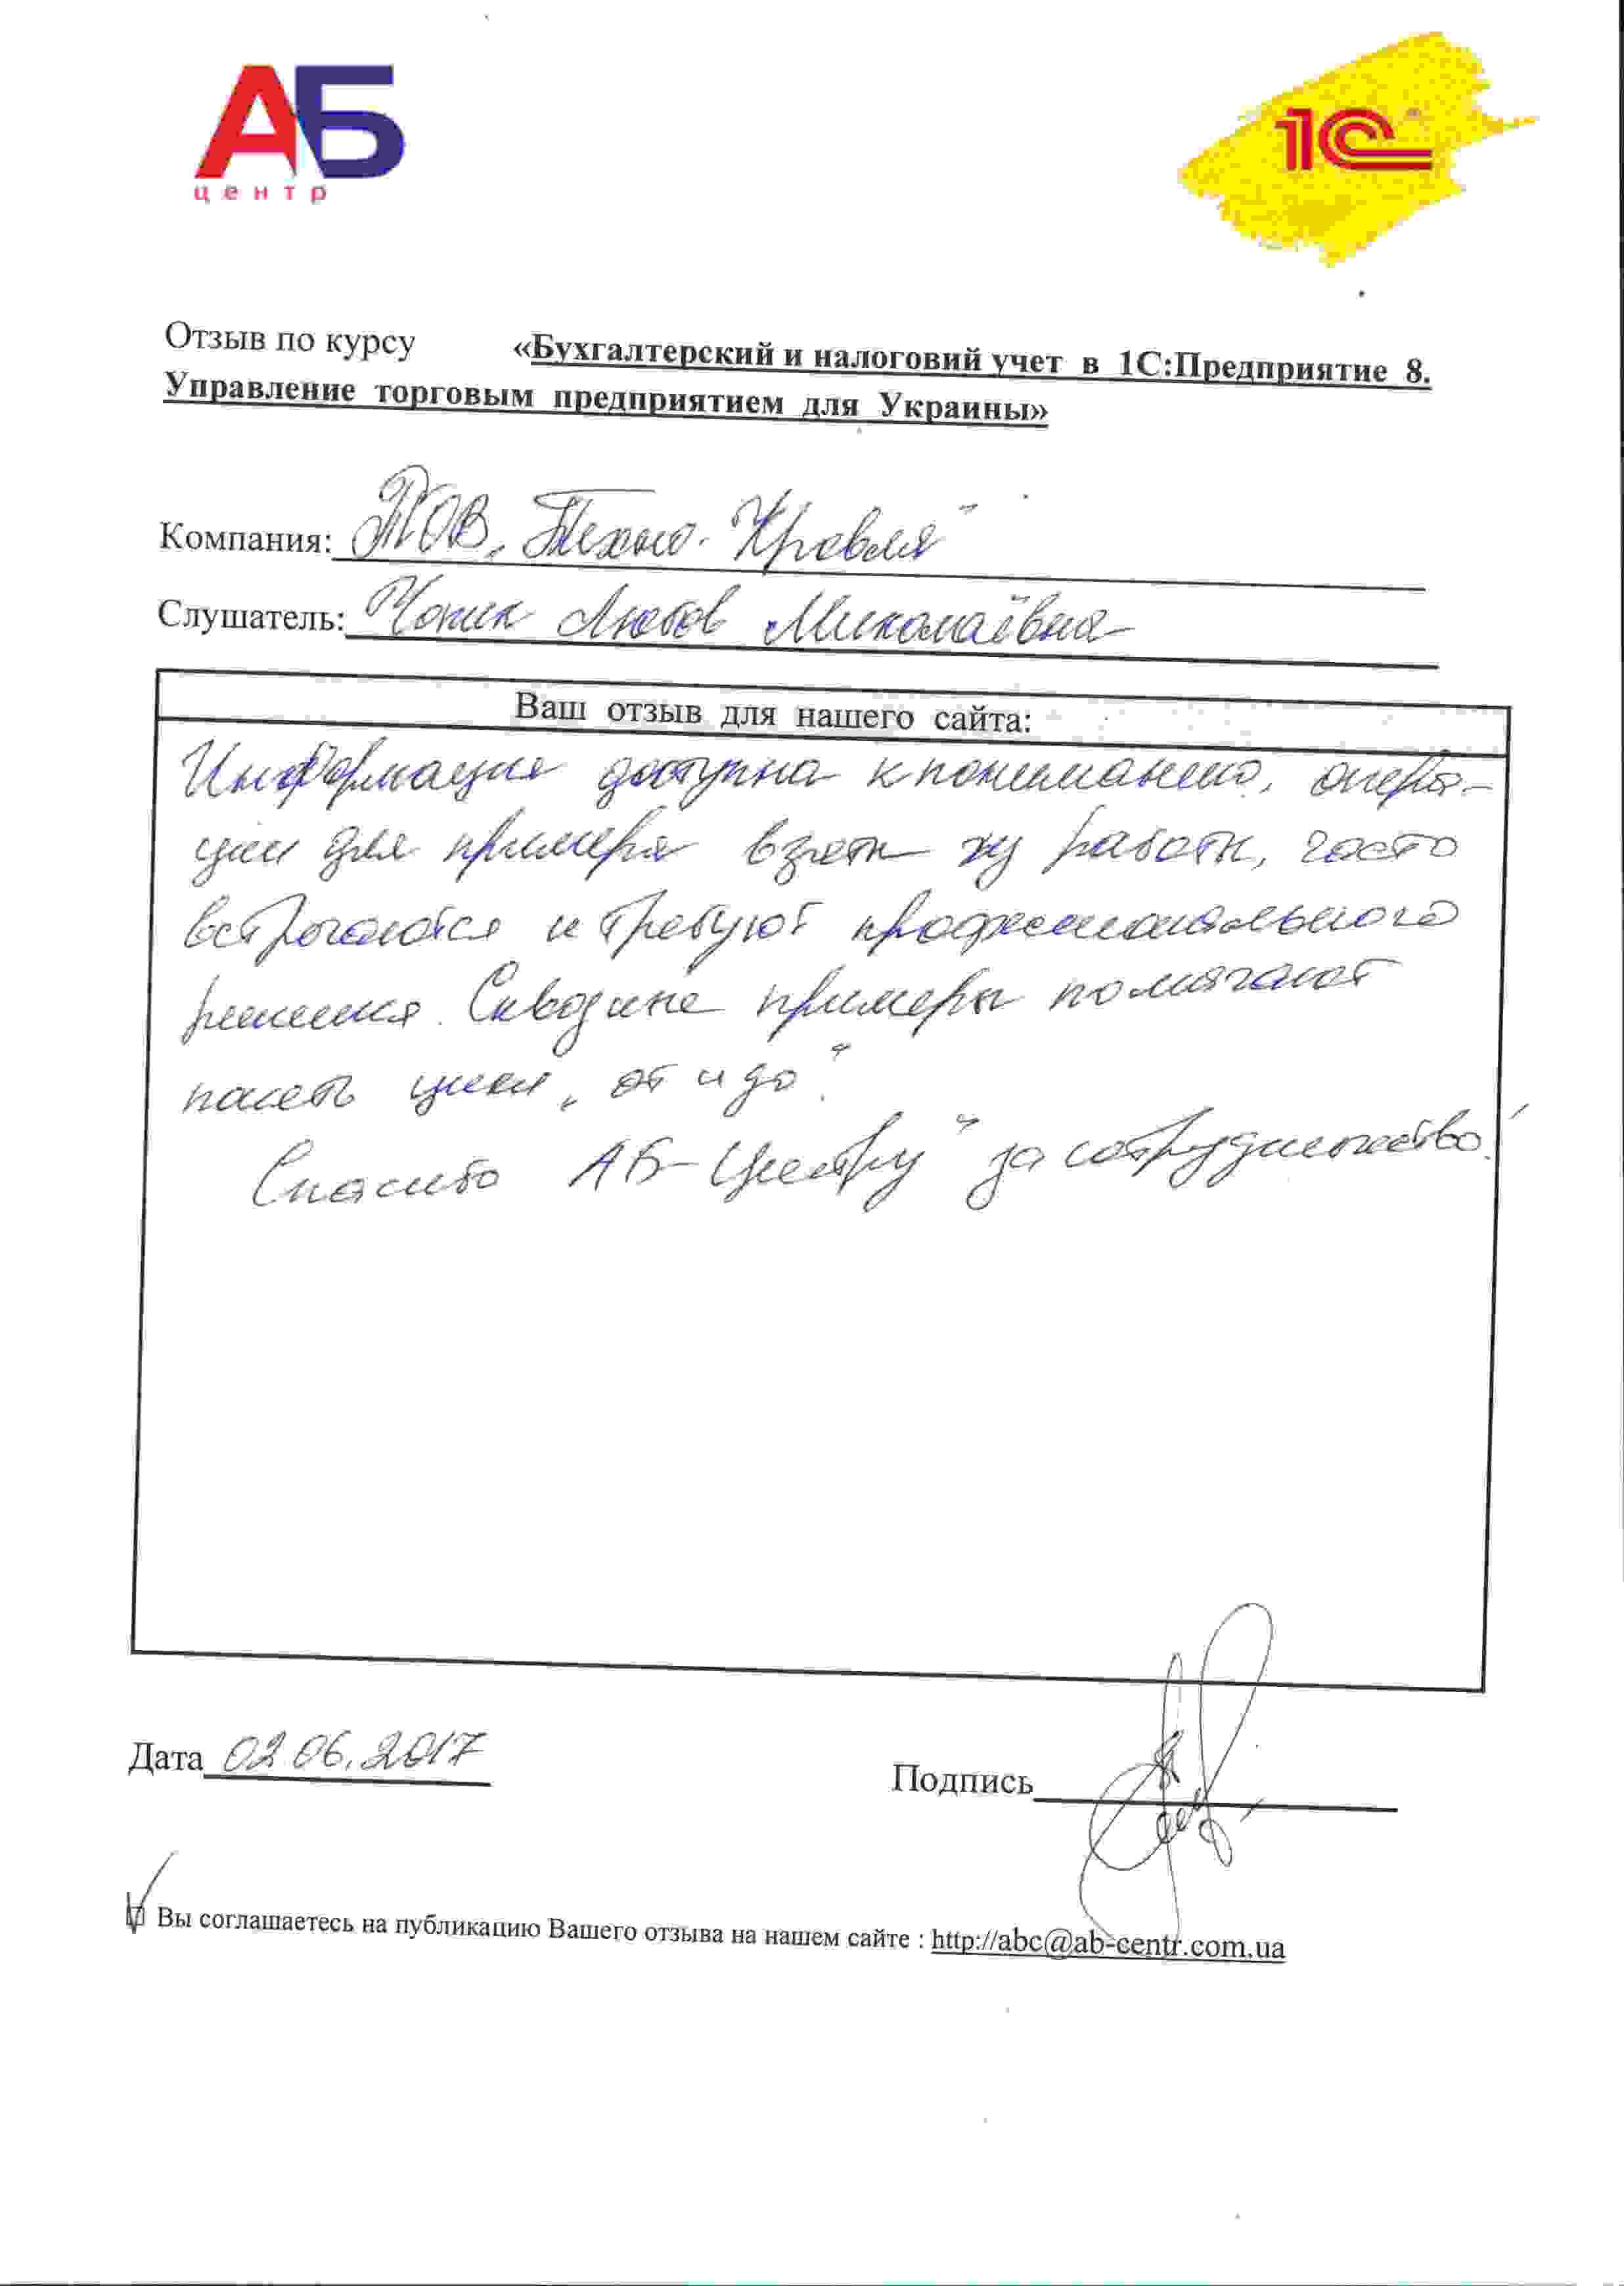 АБ
центр
1С
Отзыв по курсу «Бухгалтерский и налоговий учет в 1С:Предприятие 8.
Управление торговым предприятием для Украины»
Компания: ТОВ „Техно-Кровля"
Слушатель: Чопик Любов Миколаївна
Ваш отзыв для нашего сайта:
Информация доступна к пониманию, опера-
ции для примера взяты из работы, часто
встречаются и требуют профессионального
решения. Сквозние примеры помагают
понять цикл „от и до".
Спасибо АБ-Центру" за сотрудничество!
Дата 02.06.2017
Подпись
Вы соглашаетесь на публикацию Вашего отзыва на нашем сайте : http://abc@ab-centr.com.ua